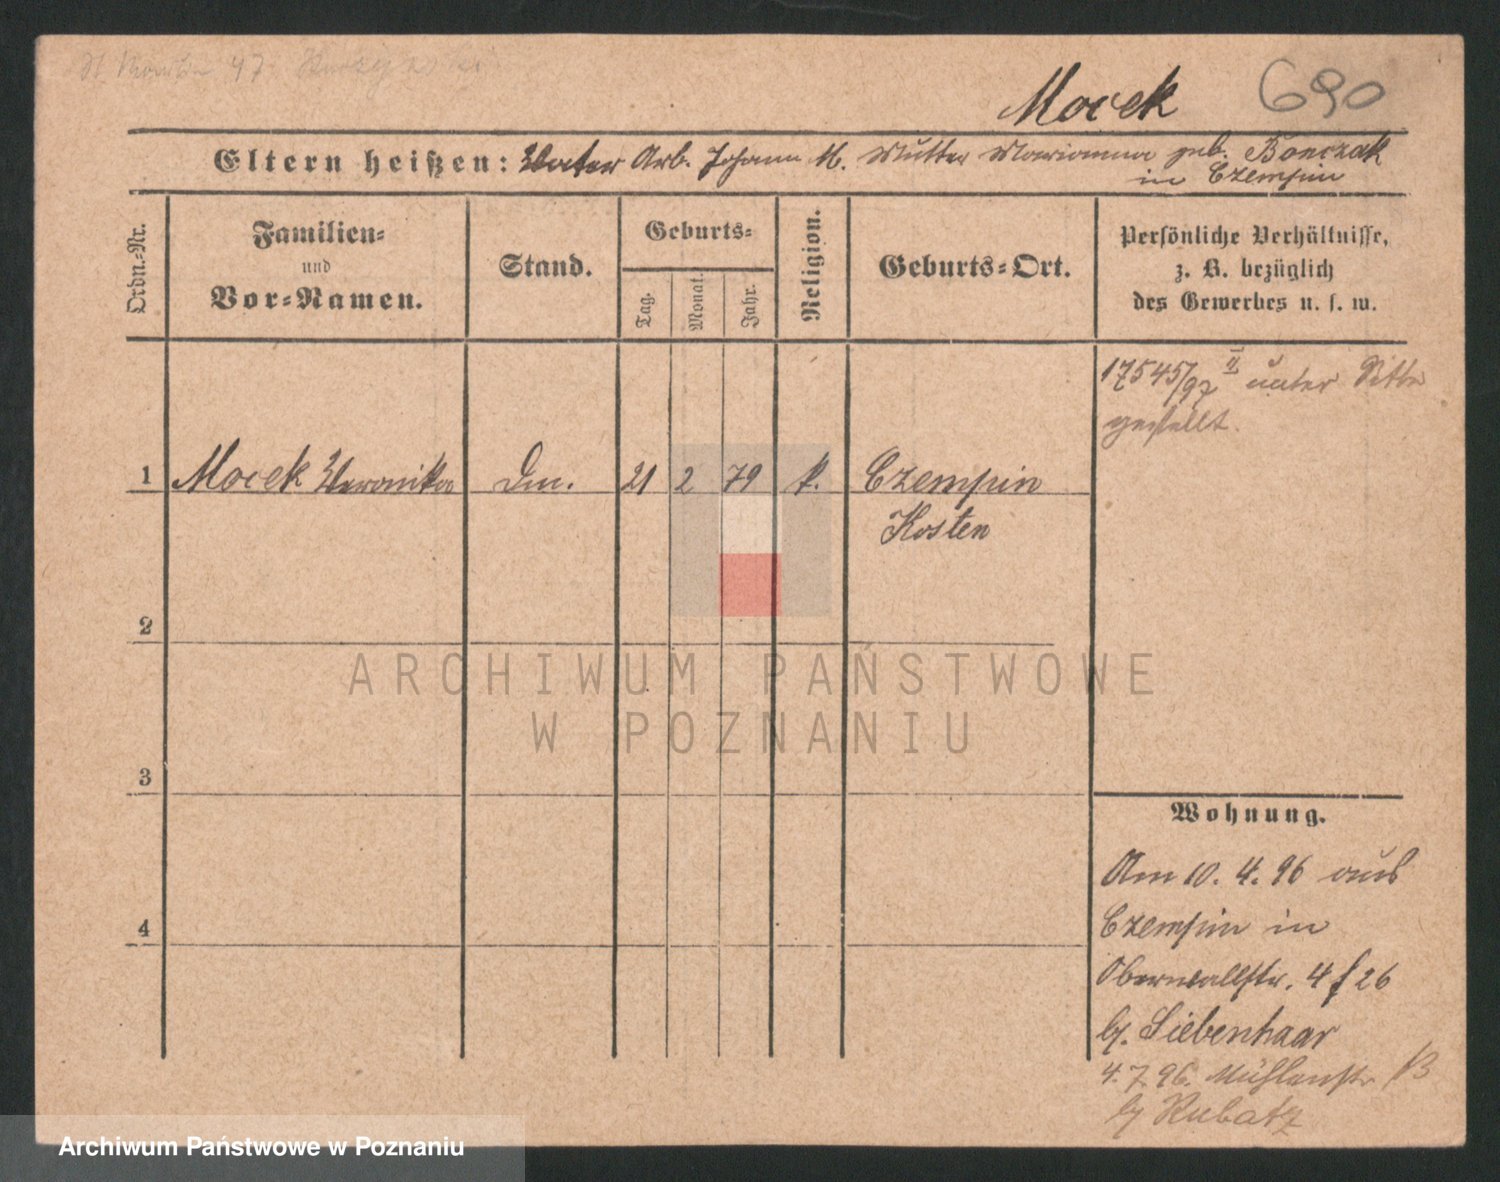 St Martin 47.
Mocek 690
Eltern heißen: Vater Arb. Johann M. Mutter Marianna geb. Bonczak
in Czempin
Ordn.-Nr.
Familien-
und
Vor-Namen.
Stand.
Geburts-
Tag.
Monat.
Jahr.
Religion.
Geburts-Ort.
Persönliche Verhältnisse,
z. B. bezüglich
des Gewerbes u. s. w.
17545/97 II unter Sitte
gestellt.
1 Mocek Veronika Dm. 21 2 79 k. Czempin
Kosten
2
3
4
ARCHIWUM PAŃSTWOWE
W POZNANIU
Wohnung.
Am 10. 4. 96 aus
Czempin in
Oberwallstr. 4 f 26
b. Siebenhaar
4.7.96. Mühlenstr
b Kubatz
Archiwum Państwowe w Poznaniu